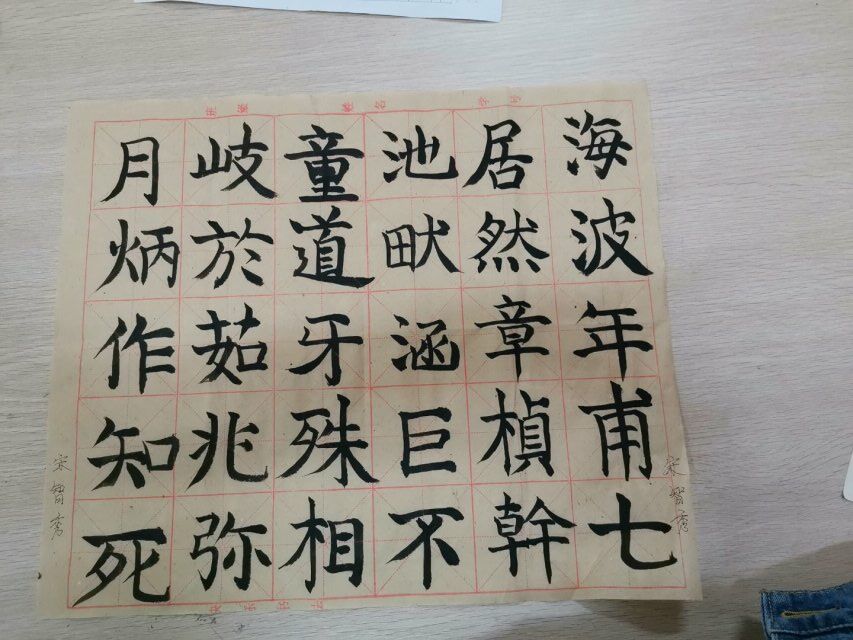 海波年甫七
居然章楨幹
池畎涵巨不
童道牙殊相
歧於茹兆弥
月炳作知死
宋智秀
宋智秀